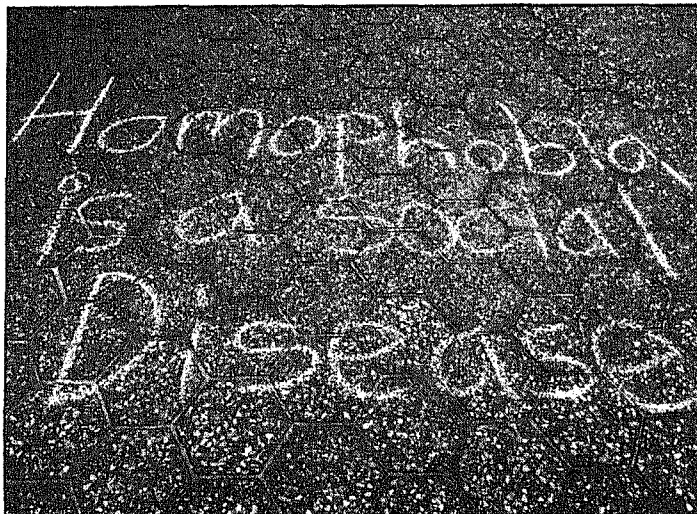 Homophobia
is a social
Disease